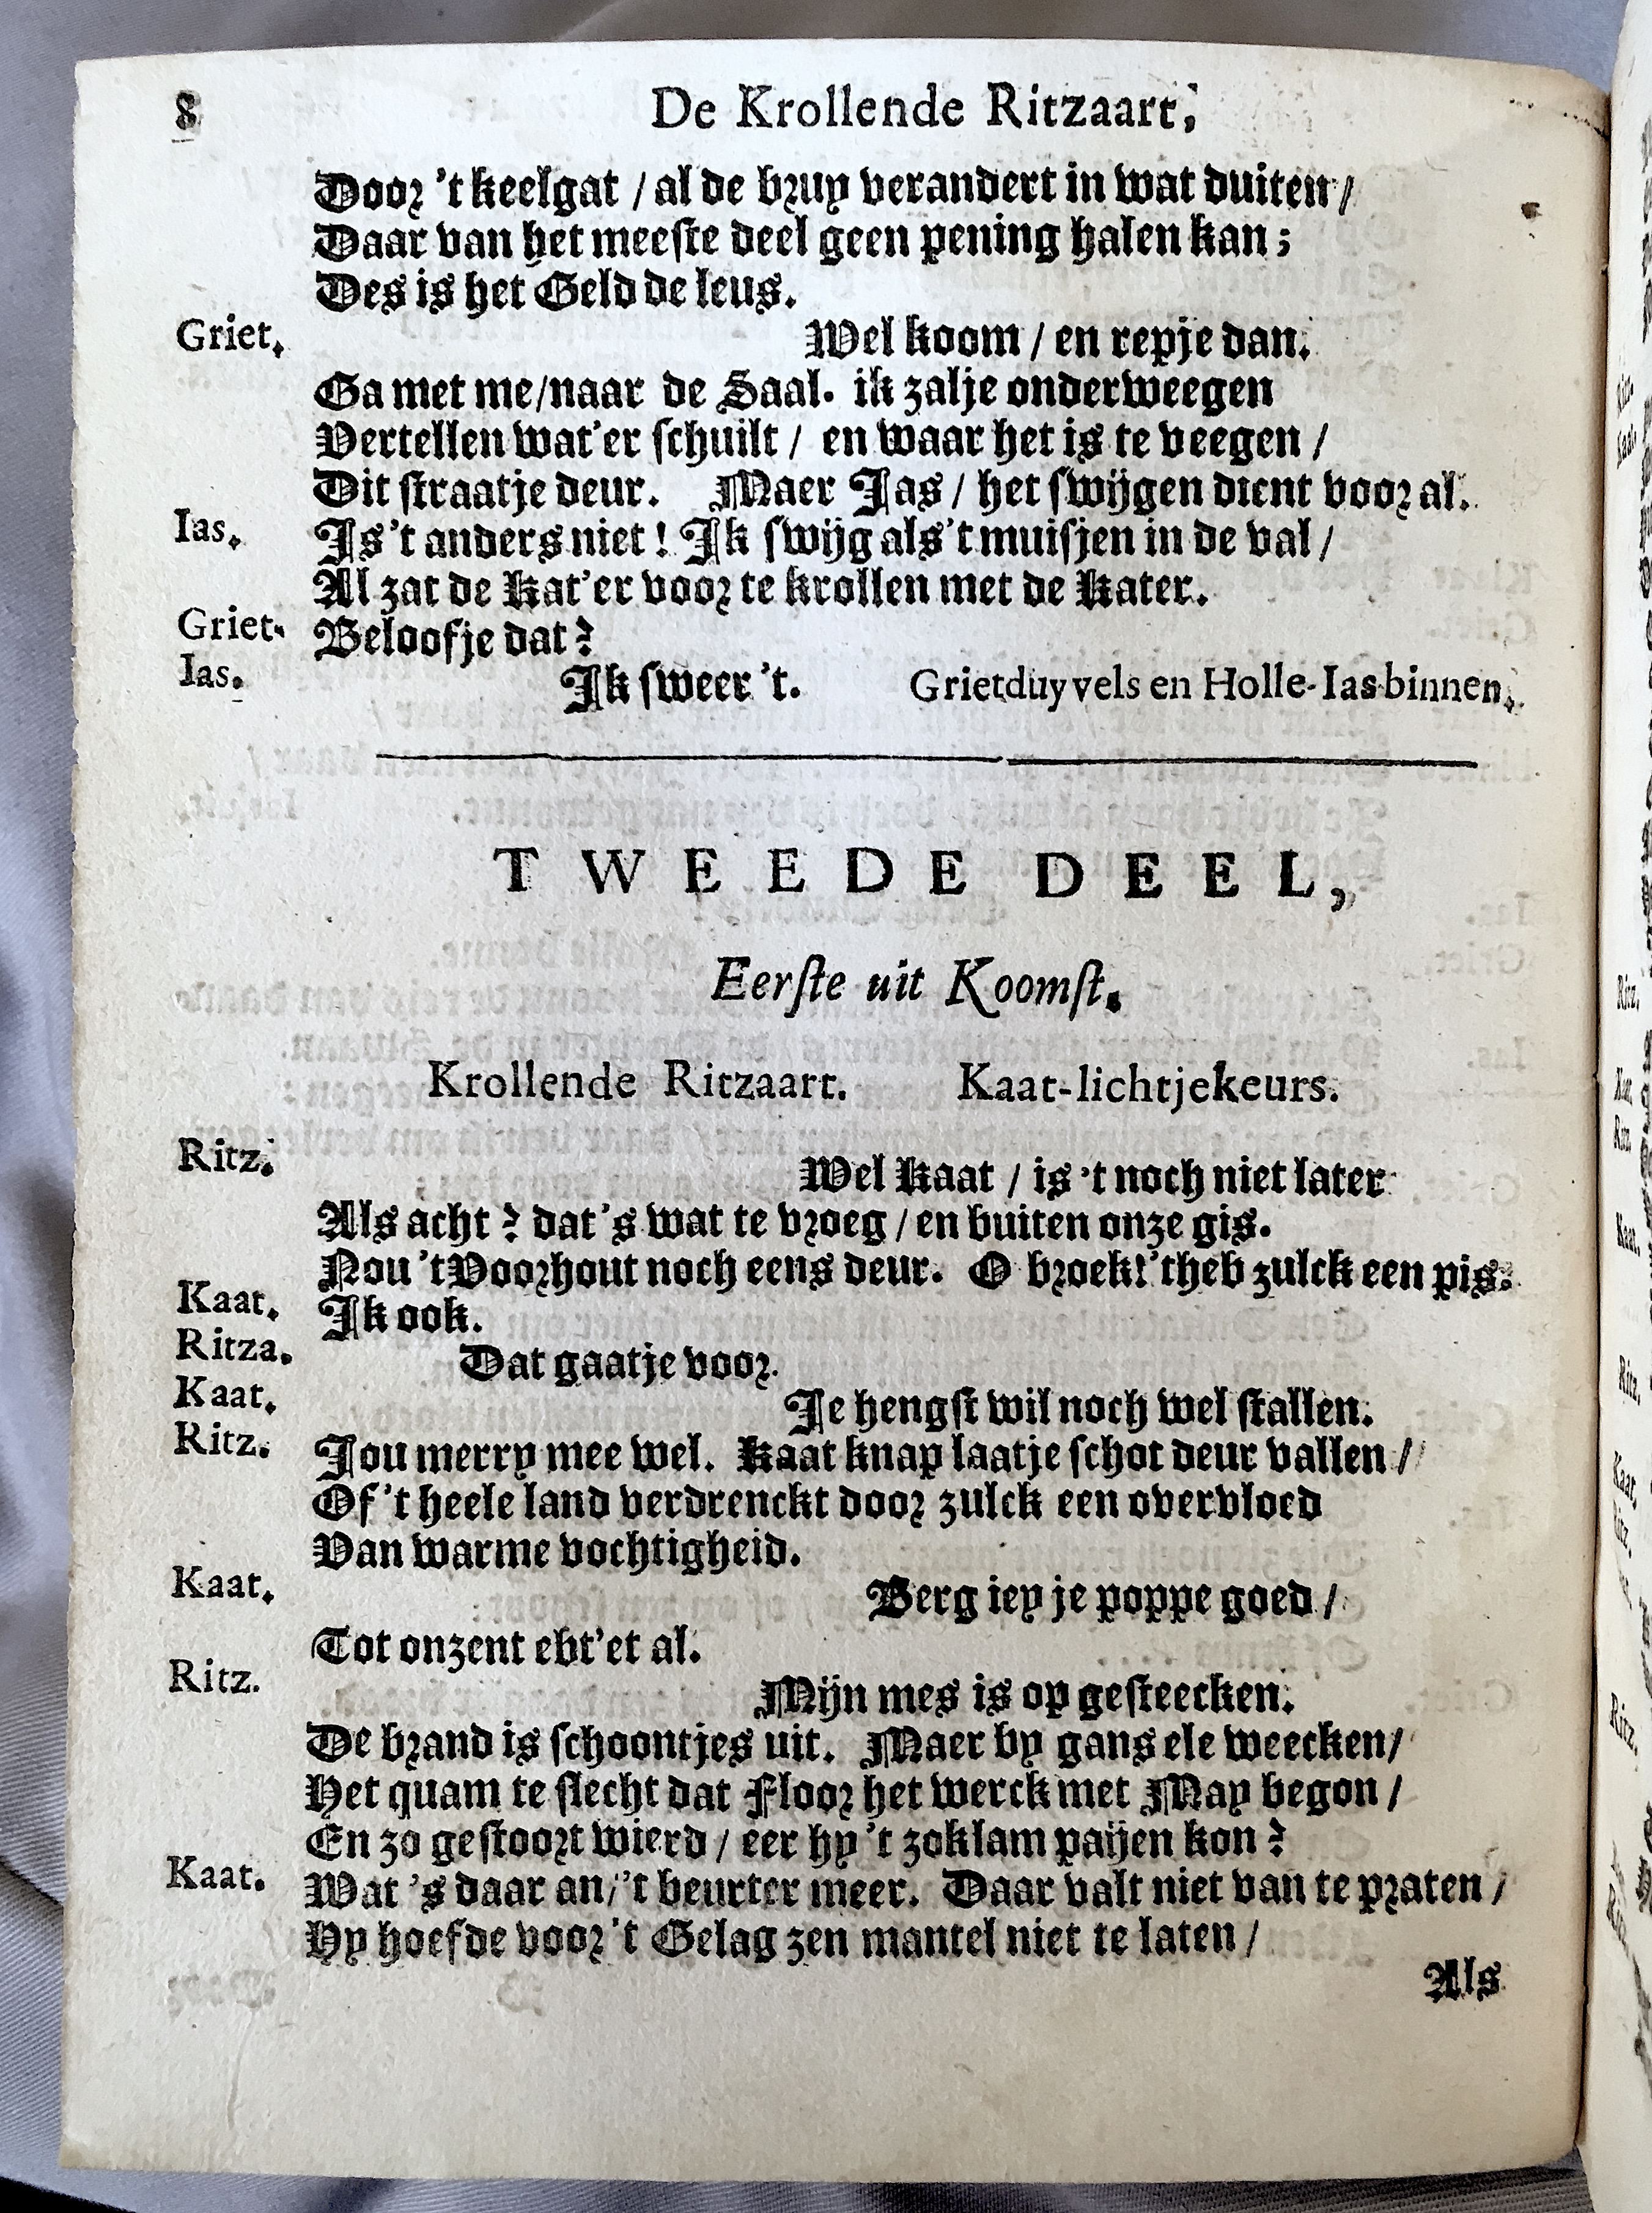 8 De Krollende Ritzaart,
Door 't keelgat / al de bruy verandert in wat duiten /
Daar van het meeste deel geen pening halen kan;
Des is het Geld de leus.
Griet. Wel koom / en repje dan.
Ga met me/naar de Saal. ik zalje onderweegen
Vertellen wat'er schuilt / en waar het is te veegen /
Dit straatje deur. Maer Jas / het swijgen dient voor al.
Ias. Is 't anders niet! Ik swijg als 't muisjen in de val /
Al zat de Kat'er voor te krollen met de Kater.
Griet. Beloofje dat?
Ias. Ik sweer 't. Grietduyvels en Holle-Ias binnen.
TWEEDE DEEL,
Eerste uit Koomst.
Krollende Ritzaart. Kaat-lichtjekeurs.
Ritz. Wel Kaat / is 't noch niet later
Als acht? dat's wat te vroeg / en buiten onze gis.
Nou 't Voorhout noch eens deur. O broek! 'theb zulck een pis.
Kaat. Ik ook.
Ritza. Dat gaatje voor.
Kaat. Je hengst wil noch wel stallen.
Ritz. Jou merry mee wel. Kaat knap laatje schot deur vallen /
Of 't heele land verdrenckt door zulck een overvloed
Van warme vochtigheid.
Kaat. Berg iey je poppe goed /
Tot onzent ebt'et al.
Ritz. Mijn mes is op gesteecken.
De brand is schoontjes uit. Maer by gans ele weecken /
Het quam te slecht dat Floor het werck met May begon /
En zo gestoort wierd / eer hy 't zoklam paijen kon?
Kaat. Wat 's daar an / 't beurter meer. Daar valt niet van te praten /
Hy hoefde voor 't Gelag zen mantel niet te laten /
Als